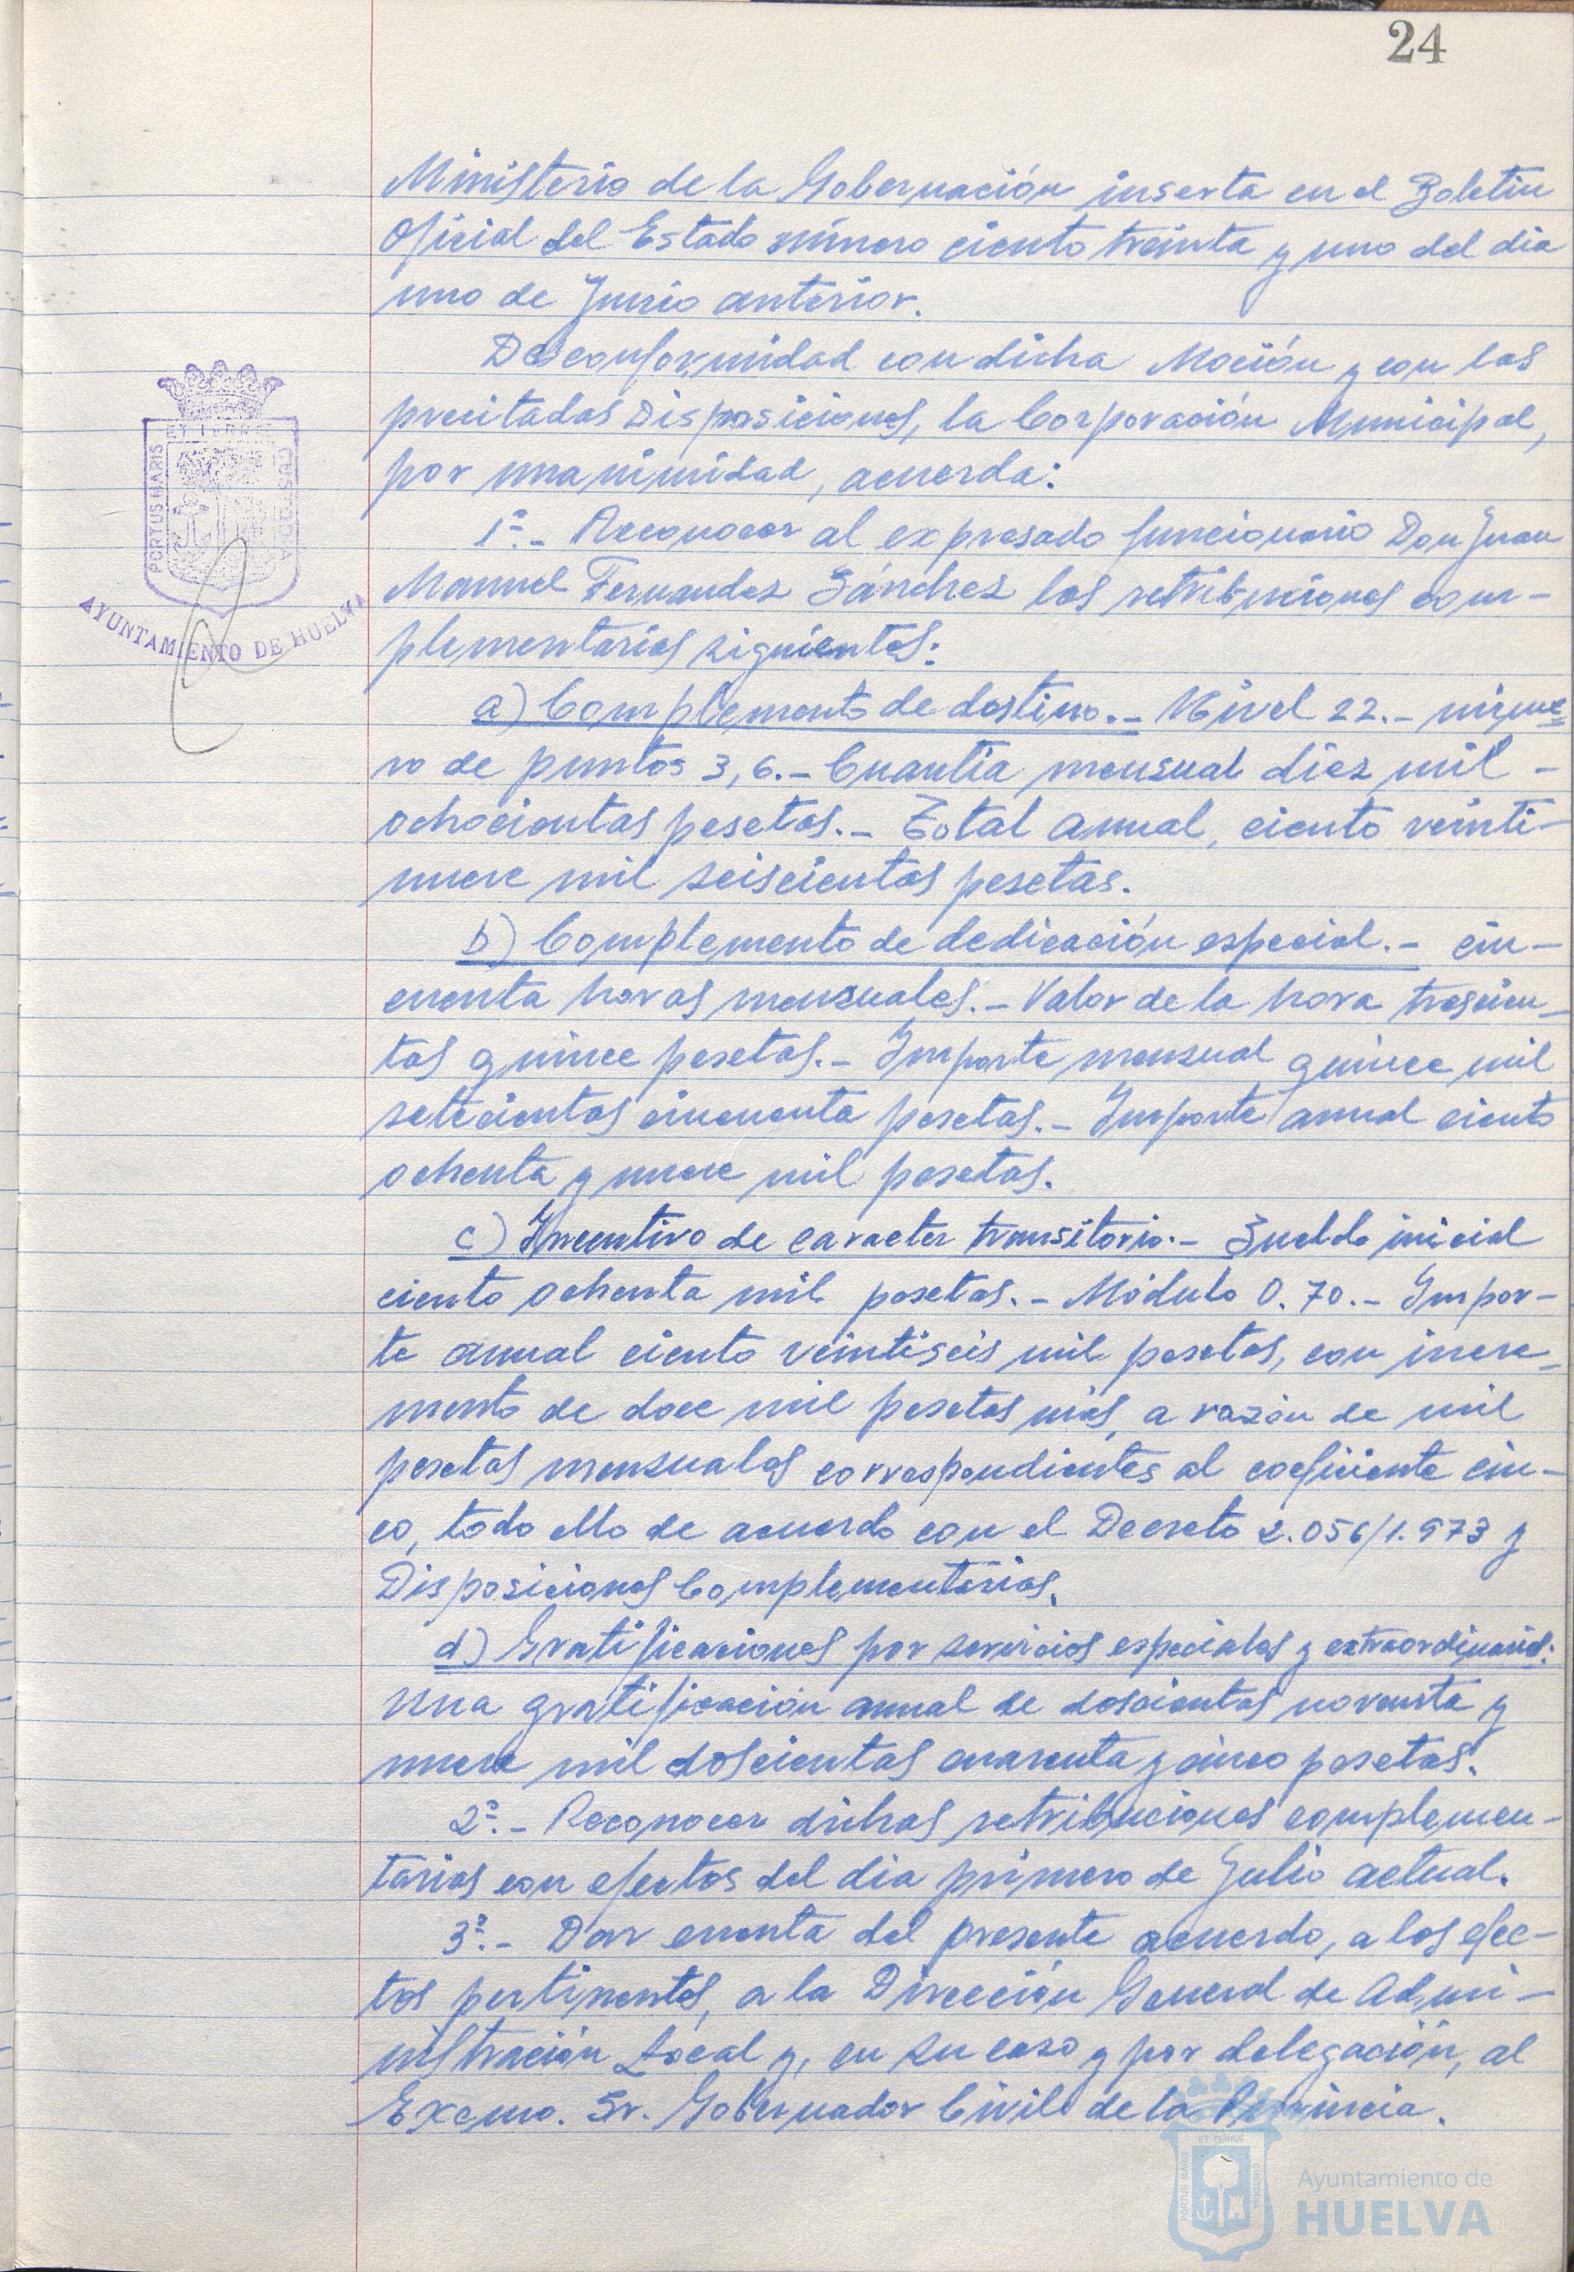 24
Ministerio de la Gobernación inserta en el Boletin
Oficial del Estado número ciento treinta y uno del dia
uno de Junio anterior.
De conformidad con dicha Moción y con las
precitadas Disposiciones, la Corporación Municipal,
por unanimidad, acuerda:
1º.- Reconocer al expresado funcionario Don Juan
Manuel Fernandez Sánchez las retribuciones com-
plementarias siguientes:
a) Complemento de destino.- Nivel 22.- núme-
ro de puntos 3,6.- Cuantia mensual diez mil -
ochocientas pesetas.- Total anual, ciento veinti-
nueve mil seiscientas pesetas.
b) Complemento de dedicación especial.- cin-
cuenta horas mensuales.- Valor de la hora trescien-
tas quince pesetas.- Importe mensual quince mil
setecientas cincuenta pesetas.- Importe anual ciento
ochenta y nueve mil pesetas.
c) Incentivo de caracter transitorio.- Sueldo inicial
ciento ochenta mil pesetas.- Módulo 0.70.- Impor-
te anual ciento veintiseis mil pesetas, con incre-
mento de doce mil pesetas más, a razón de mil
pesetas mensuales correspondientes al coeficiente cin-
co, todo ello de acuerdo con el Decreto 2.056/1.973 y
Disposiciones Complementarias.
d) Gratificaciones por servicios especiales y extraordinarios.
Una gratificación anual de doscientas noventa y
nueve mil doscientas cuarenta y cinco pesetas.
2º.- Reconocer dichas retribuciones complemen-
tarias con efectos del dia primero de Julio actual.
3º.- Dar cuenta del presente acuerdo, a los efec-
tos pertinentes, a la Dirección General de Admi-
nistración Local y, en su caso y por delegación, al
Excmo. Sr. Gobernador Civil de la Provincia.
PORTUS MARIS
ET TERRAE
CUSTODIA
AYUNTAMIENTO DE HUELVA
PORTUS MARIS
ET TERRÆ
CUSTODIA
Ayuntamiento de
HUELVA